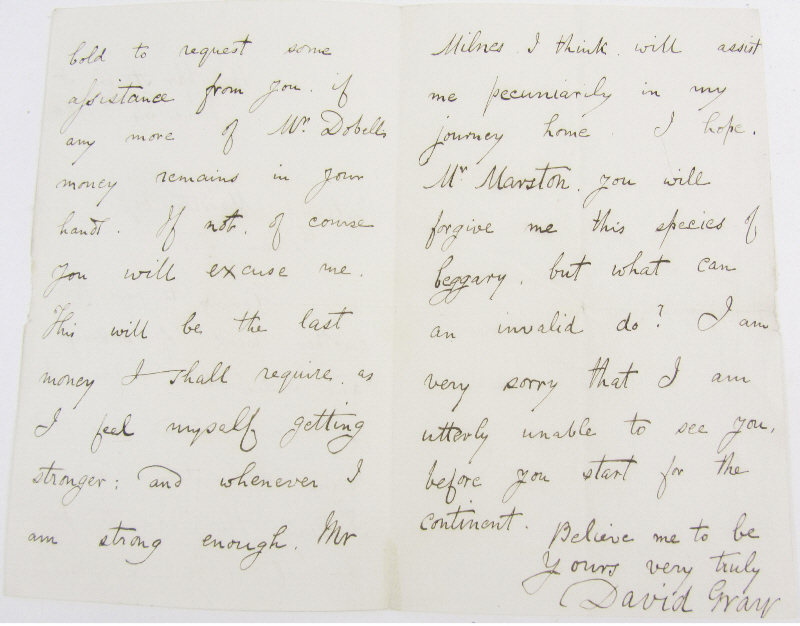 bold to request some
assistance from you, if
any more of Mr Dobells
money remains in your
hand. If not, of course
you will excuse me.
This will be the last
money I shall require, as
I feel myself getting
stronger; and whenever I
am strong enough, Mr
Milnes I think will assist
me pecuniarily in my
journey home. I hope,
Mr Marston, you will
forgive me this species of
beggary, but what can
an invalid do? I am
very sorry that I am
utterly unable to see you,
before you start for the
continent.
Believe me to be
Yours very truly
David Gray